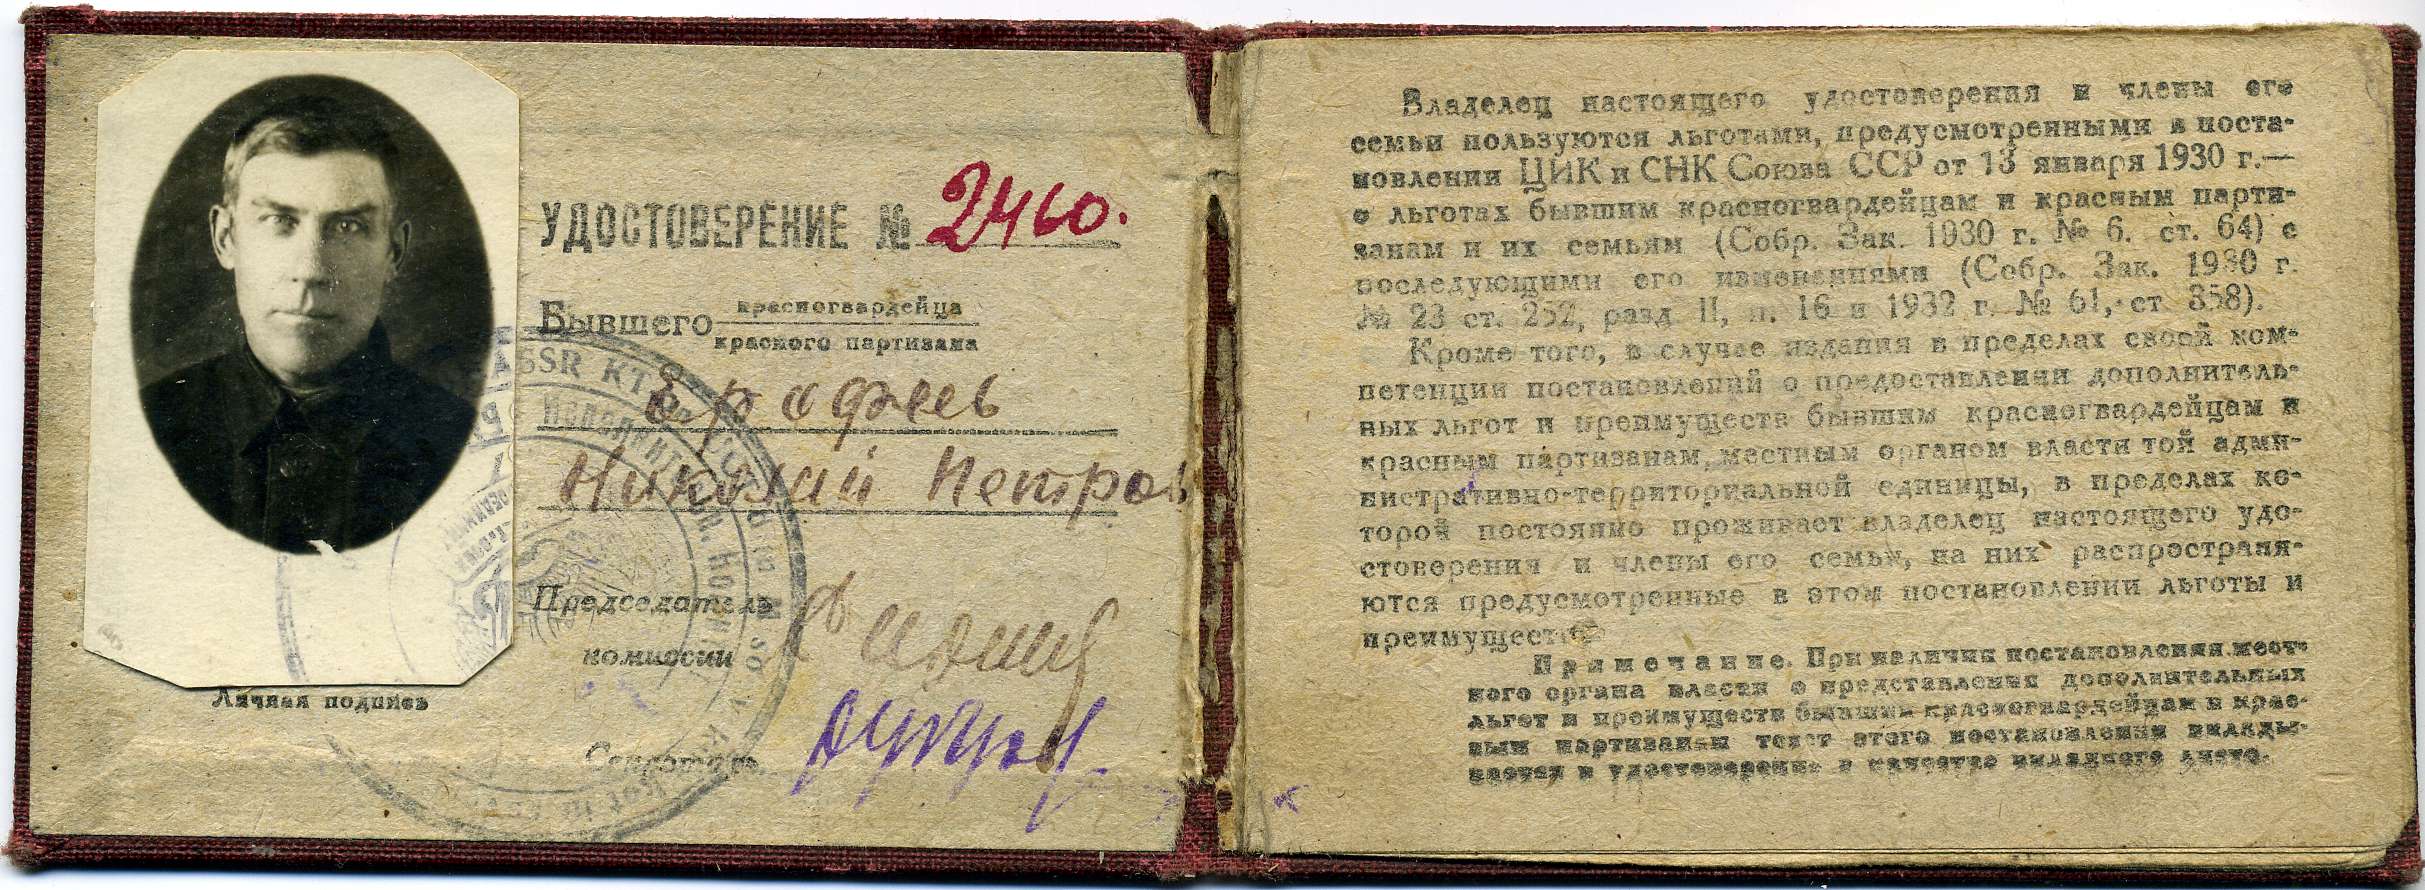 УДОСТОВЕРЕНИЕ № 2460.
Бывшего красногвардейца
красного партизана
Ерофеев
Николай Петров
Председатель
комиссии
Секретарь
Личная подпись
ASSR
Владелец настоящего удостоверения и члены его
семьи пользуются льготами, предусмотренными в поста-
новлении ЦИК и СНК Союза ССР от 13 января 1930 г.—
о льготах бывшим красногвардейцам и красным парти-
занам и их семьям (Собр. Зак. 1930 г. № 6. ст. 64) с
последующими его изменениями (Собр. Зак. 1930 г.
№ 23 ст. 252, разд II, п. 16 и 1932 г. № 61, ст 358).
Кроме того, в случае издания в пределах своей ком-
петенции постановлений о предоставлении дополнитель-
ных льгот и преимуществ бывшим красногвардейцам и
красным партизанам, местным органом власти той адми-
нистративно-территориальной единицы, в пределах ко-
торой постоянно проживает владелец настоящего удо-
стоверения и члены его семьи, на них распространя-
ются предусмотренные в этом постановлении льготы и
преимущества
Примечание. При наличии постановления мест-
ного органа власти о представлении дополнительных
льгот и преимуществ бывшим красногвардейцам и крас-
ным партизанам текст этого постановления вклады-
вается в удостоверение в качестве вкладного листа.